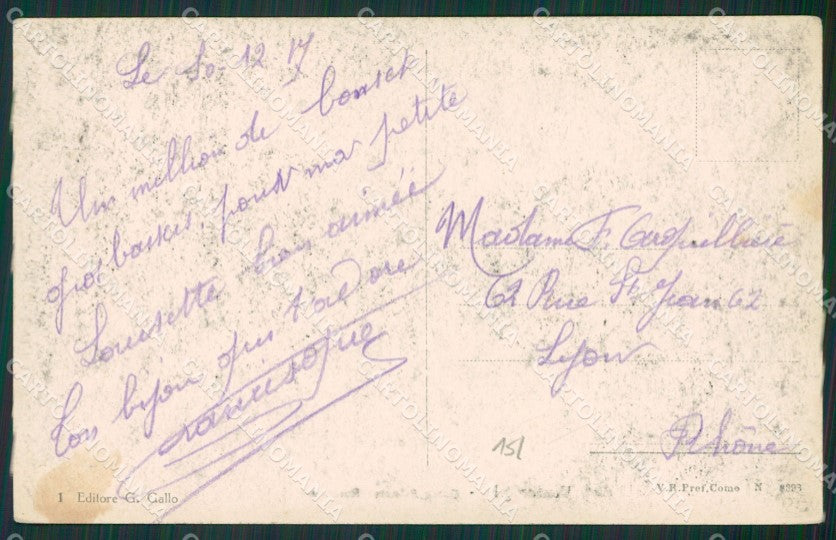 Le 10 12 17
Un million de bons et
gros baisers pour ma petite
Lousette bien aimée
Ton bijou qui t'adore
Madame F.
62 Rue St Jean 62
Lyon
Rhône
15/
1 Editore G. Gallo
V.R. Pref. Como N
CARTOLINOMANIA